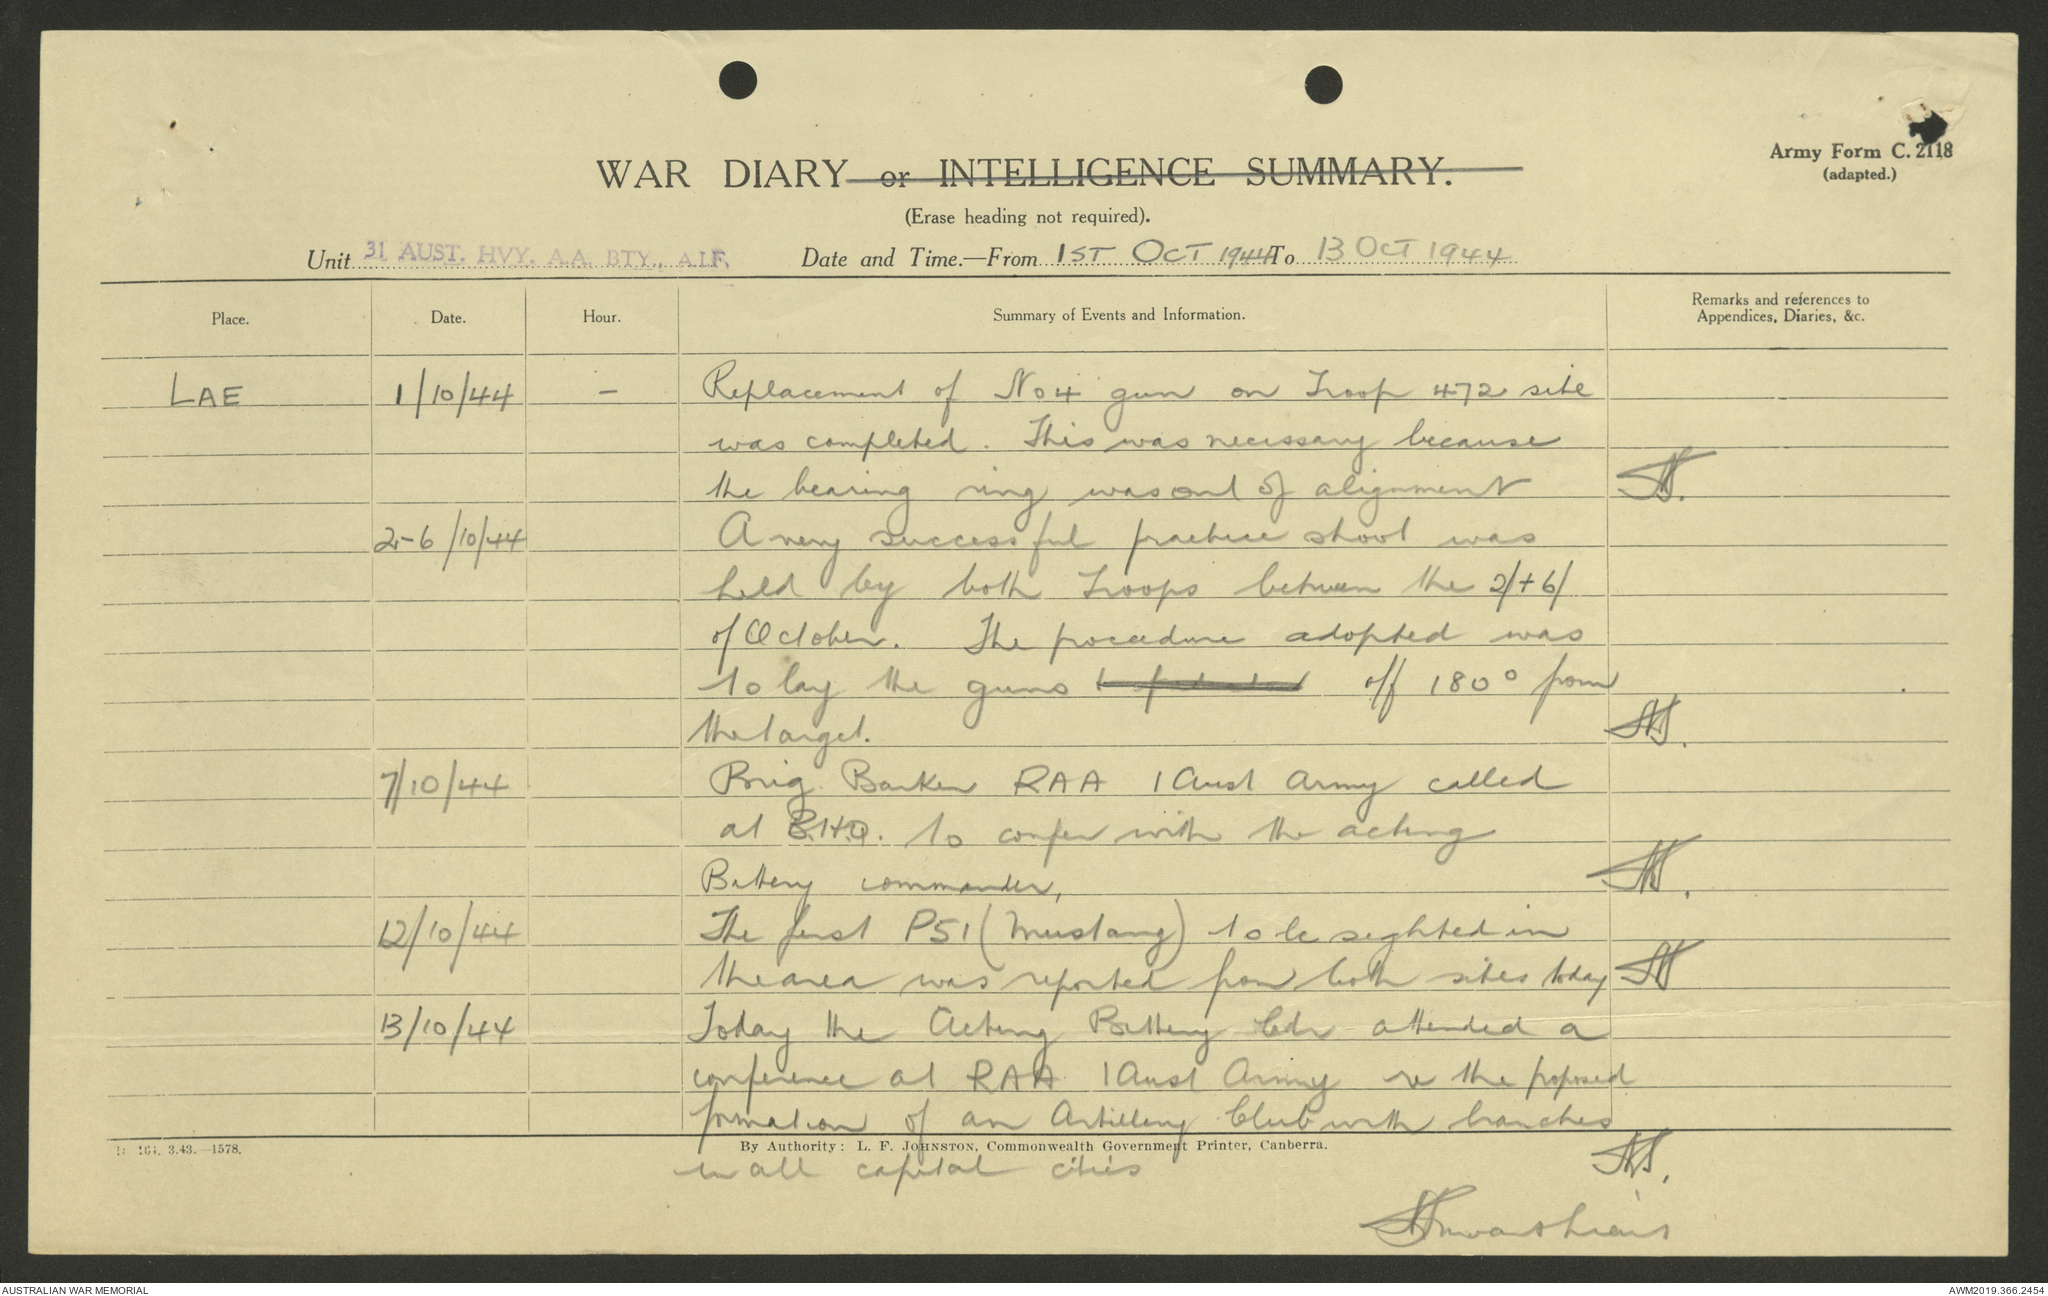 WAR DIARY or INTELLIGENCE SUMMARY.
Army Form C. 2118
(adapted.)
(Erase heading not required).
Unit 31 AUST. HVY. A.A. BTY., A.I.F. Date and Time.—From 1ST OCT 1944 To 13 OCT 1944
Place. Date. Hour. Summary of Events and Information. Remarks and references to
Appendices, Diaries, &c.
LAE 1/10/44 – Replacement of No 4 gun on Troop 472 site
was completed. This was necessary because
the bearing ring was out of alignment
2-6/10/44 A very successful practice shoot was
held by both Troops between the 2/+6/
of October. The procedure adopted was
to lay the guns off 180° from
the target.
7/10/44 Brig Barker RAA 1 Aust Army called
at B.H.Q. to confer with the acting
Battery commander,
12/10/44 The first P51 (Mustang) to be sighted in
the area was reported from both sites today
13/10/44 Today the Acting Battery Cdr attended a
conference at RAA 1 Aust Army re the proposed
formation of an Artillery Club with branches
By Authority: L. F. JOHNSTON, Commonwealth Government Printer, Canberra.
3.43.—1578.
in all capital cities
AUSTRALIAN WAR MEMORIAL
AWM2019.366.2454